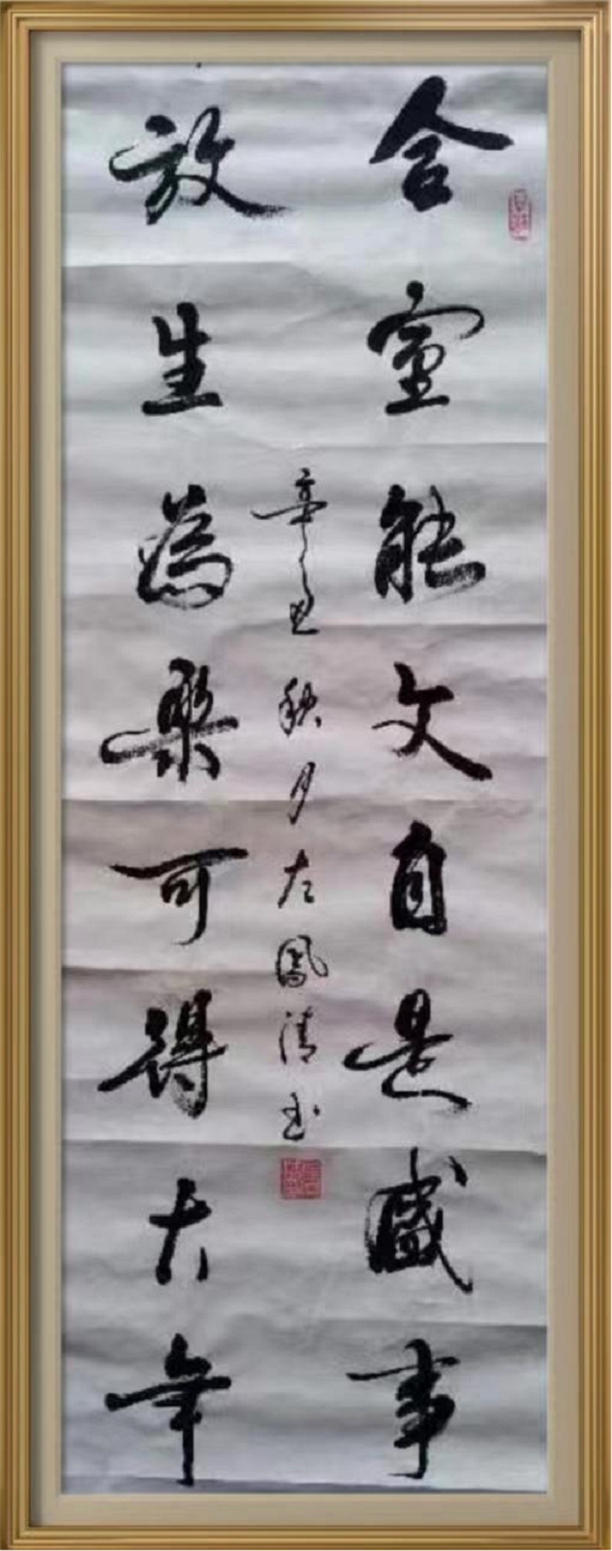 合室能文自是盛事
放生為樂可得大年
辛丑秋月左鳳清书